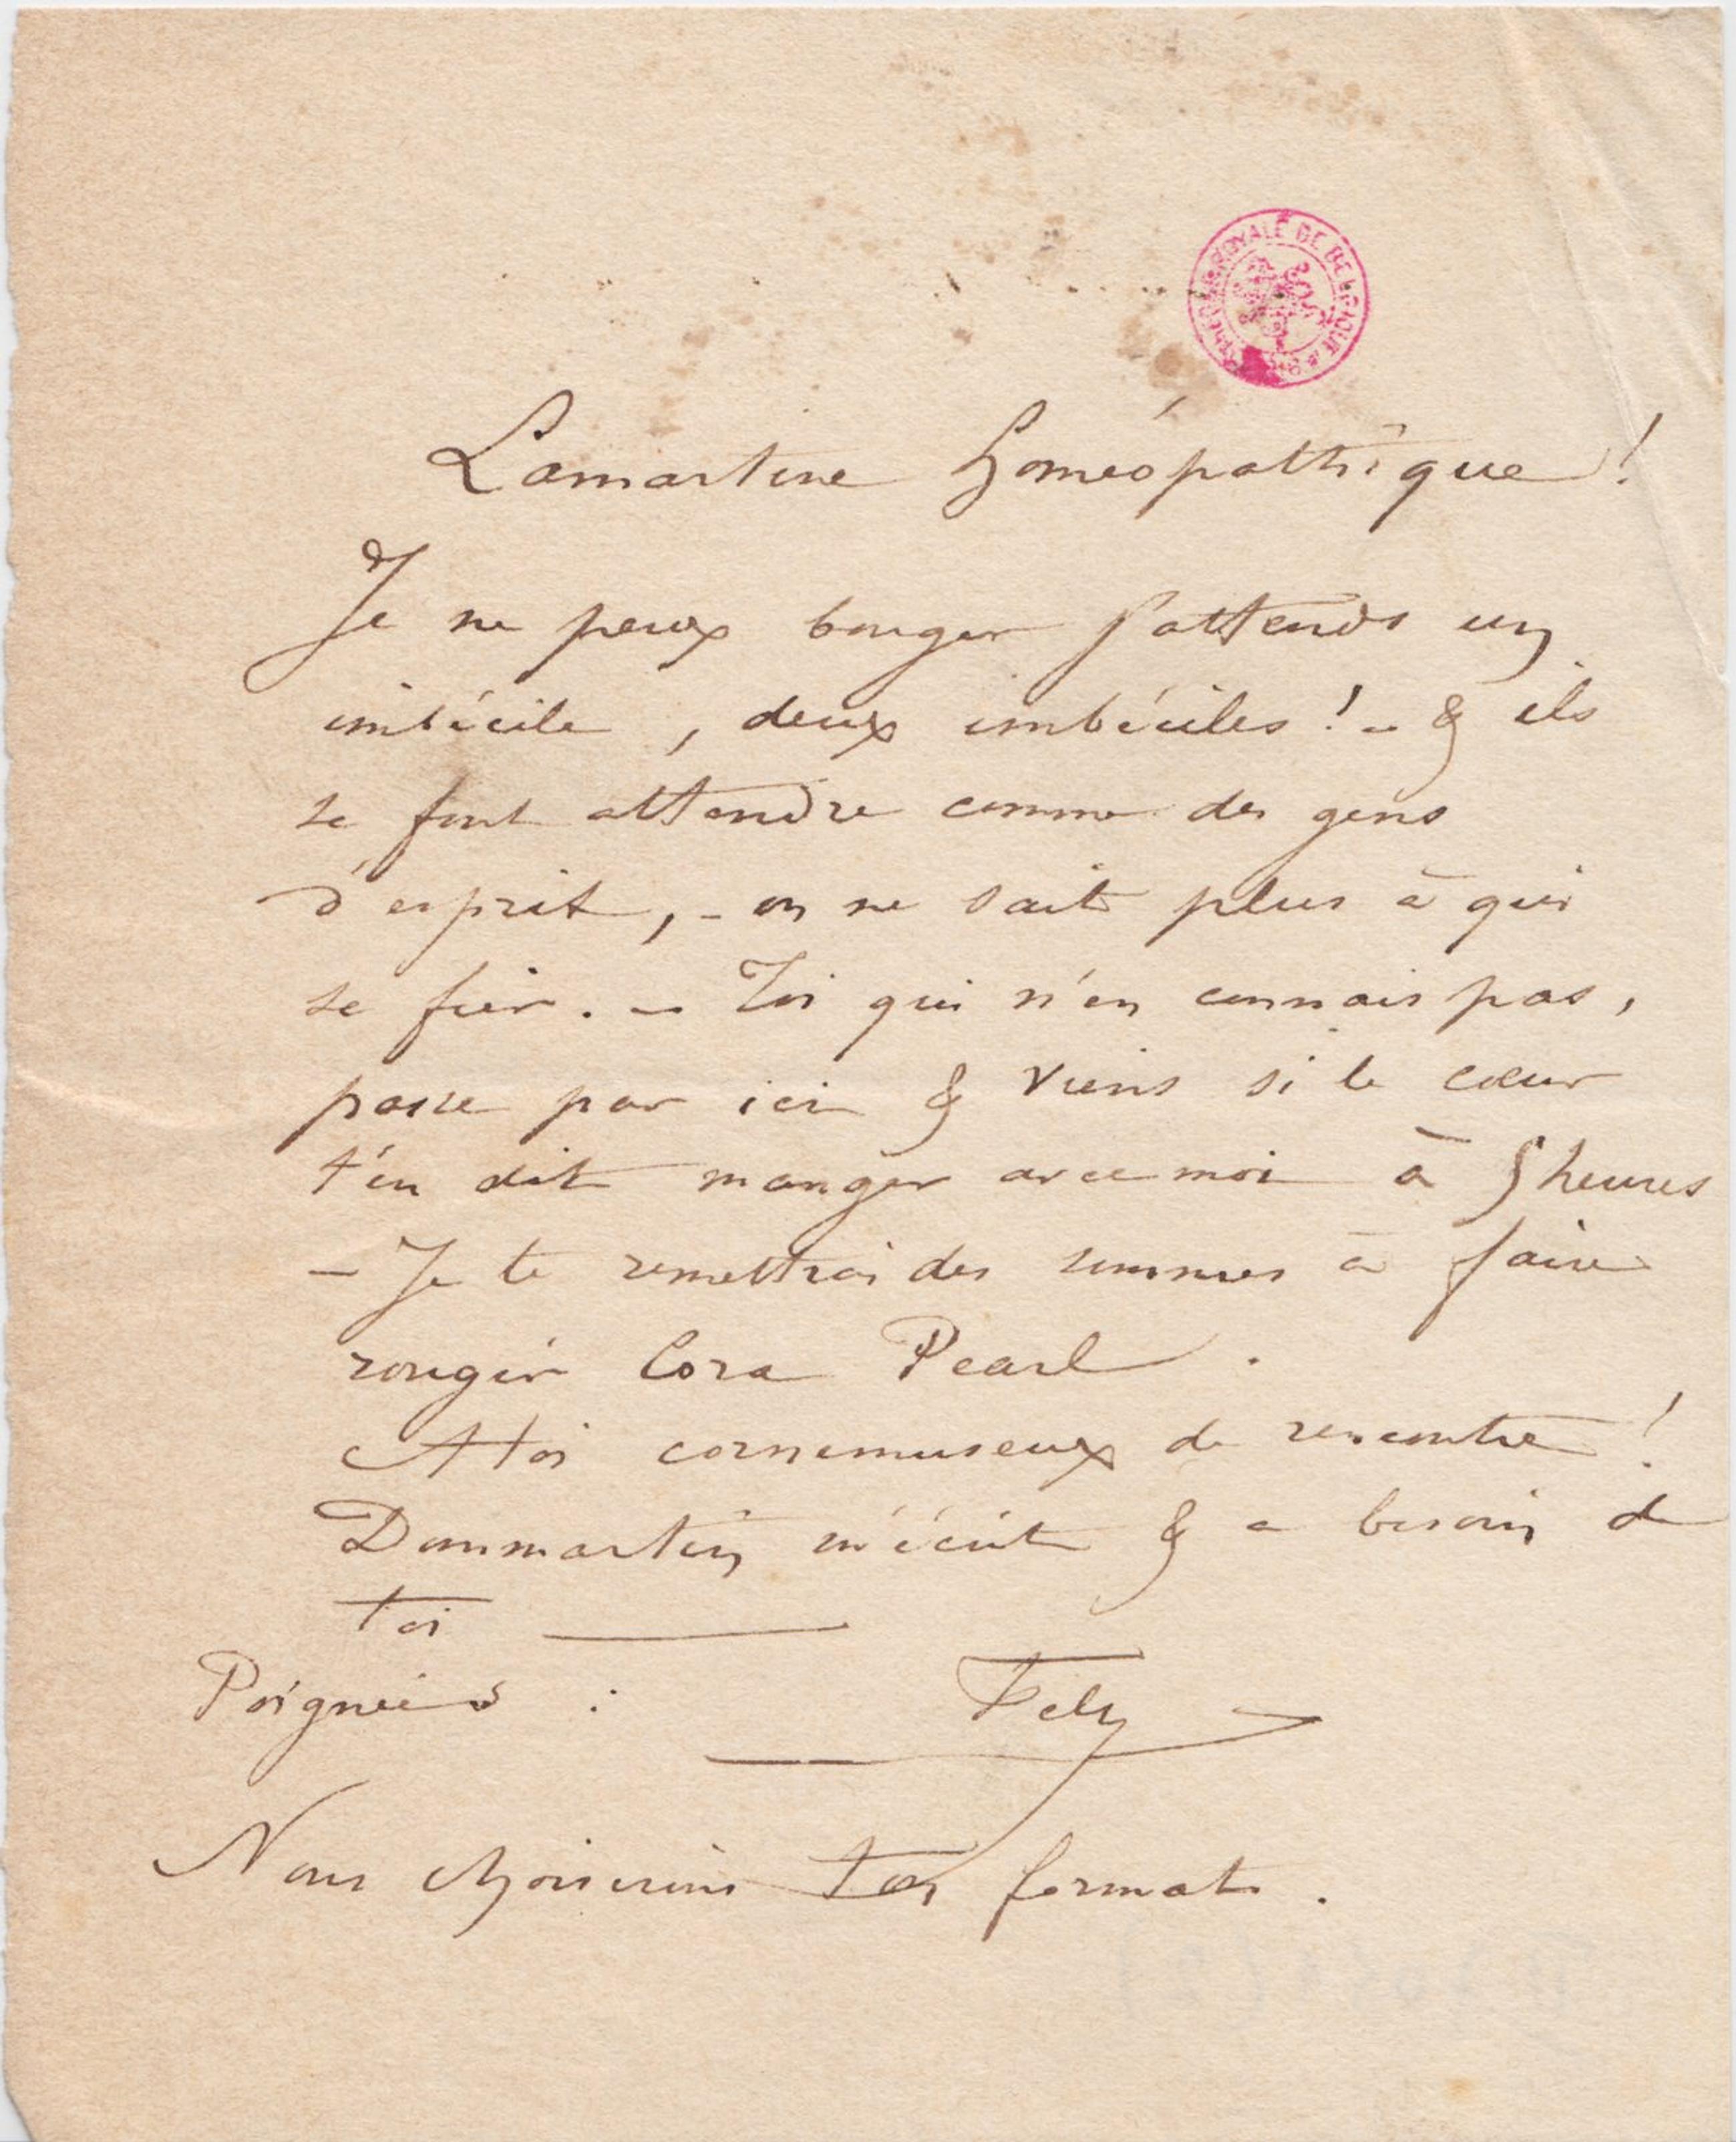 BIBLIOTHÈQUE ROYALE DE BELGIQUE
Lamartine homéopathique !
Je ne peux bouger j'attends un
imbécile, deux imbéciles ! - & ils
se font attendre comme des gens
d'esprit, - on ne sait plus à qui
se fier. - Toi qui n'en connais pas,
passe par ici & viens si le cœur
t'en dit manger avec moi à 5 heures
- Je te remettrai des sommes à faire
rougir Cora Pearl.
A toi cornemuseux de rencontre !
Dommartin m'écrit & a besoin de
toi
Poignées : Fély
Nous choisirons ton format.